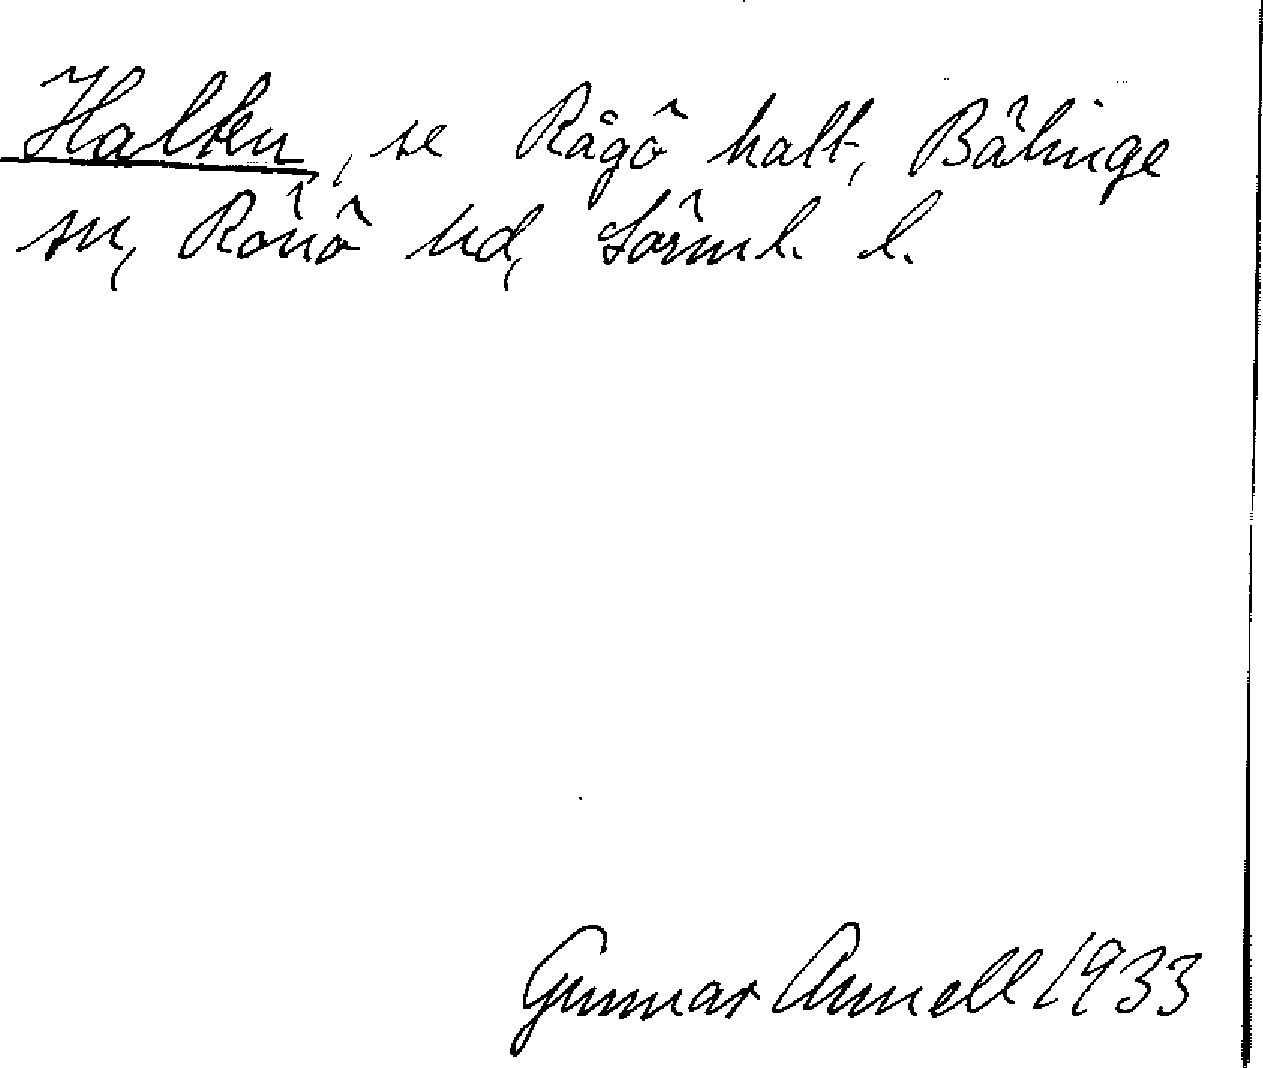 Halten, se Rågö halt, Bälinge
sn, Rönö hd, Sörml. l.
Gunnar Annell 1933